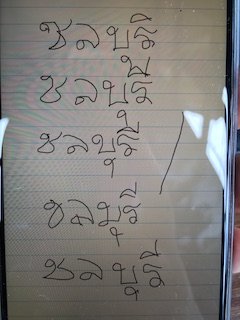 ชลบุริ
ชลบุรี
ชลบุรี
ชลบุรี
ชลบุรี